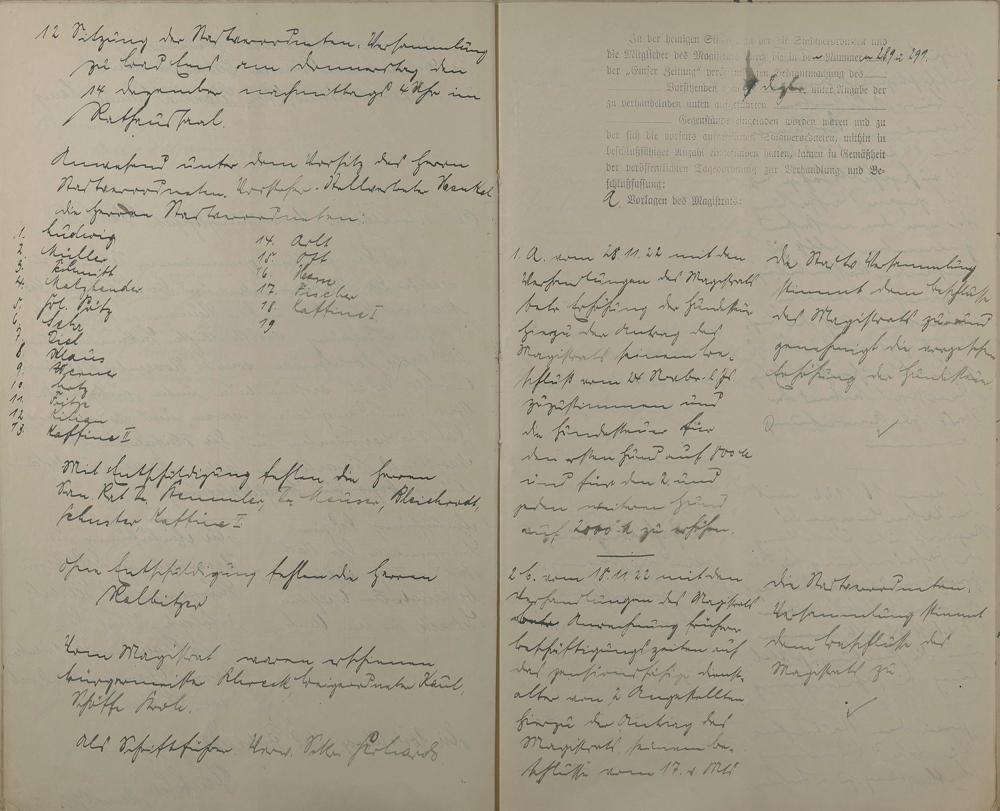 12 Sitzung der Stadtverordneten-Versammlung
zu Bad Ems am Donnerstag den
14 Dezember nachmittags 4 Uhr im
Rathaussaal.
Anwesend unter dem Vorsitz des Herrn
Stadtverordneten-Vorsteher-Stellvertreter Henkel
die Herren Stadtverordneten:
1. Ludwig
2. Müller
3. Schmitt
4. Metzlender
5. Frl. Pütz
6.
7.
8. Klaus
9. Werner
10.
11. Fritz
12. Kilian
13. Kaffine II
14. Arlt
15. Ott
16.
17. Fischer
18. Kaffine I
19
Mit Entschuldigung fehlten die Herren
San. Rat Dr Stemmler, Dr Meuser, Bleichrodt,
Schuster, Kaffine I
Ohne Entschuldigung fehlten die Herren
Kalbitzer
Vom Magistrat waren erschienen
Bürgermeister Beigeordneter Kaul,
Schöffe
Als Schriftführer Verw. Sekr Gerhards
In der heutigen der die Stadtverordneten und
die Mitglieder des Magistrats durch die in den Nummern 289 u 291.
der „Emser Zeitung" Bekanntmachung des
Vorsitzenden vom 9 Dezbr. unter Angabe der
zu verhandelnden unten aufgeführten
Gegenstände eingeladen worden waren und zu
der sich die vorseits aufgeführten Stadtverordneten, mithin in
beschlußfähiger Anzahl eingefunden hatten, kamen in Gemäßheit
der veröffentlichten Tagesordnung zur Verhandlung und Be-
schlußfassung:
A, Vorlagen des Magistrats:
1. A. vom 28 11. 22 mit den
Verhandlungen des Magistrats
betr Erhöhung der Hundesteuer
Hierzu der Antrag des
Magistrats seinem Be-
schluß vom 24 Novbr. l Js.
zuzustimmen und
die Hundesteuer für
den ersten Hund auf 800 M
und für den 2 und
jeden weiteren Hund
auf 2000 M zu erhöhen.
Die Stadtv. Versammlung
stimmt dem Beschlusse
des Magistrats zu und
genehmigt die vorgesehene
Erhöhung der Hundesteuer
2 b. vom 18.11 22 mit den
Verhandlungen des Magistrats
betr Anrechnung früherer
Beschäftigungszeiten auf
das pensionsfähige Dienst-
alter von 2 Angestellten
Hierzu der Antrag des
Magistrats, seinem Be-
schlusse vom 17. v. Mts
Die Stadtverordneten-
Versammlung stimmt
dem Beschlusse des
Magistrats zu